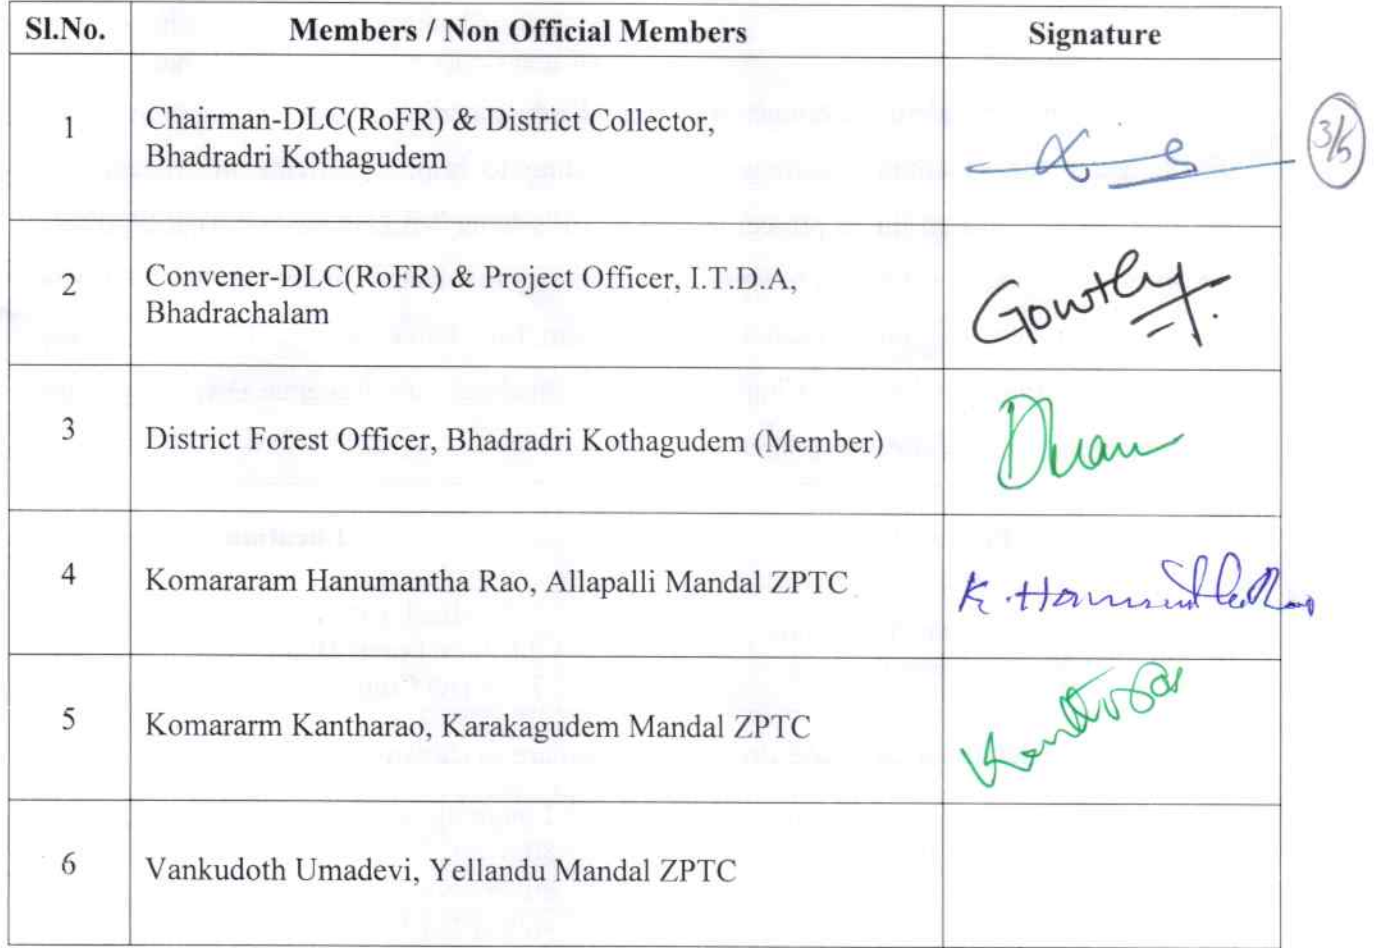 Sl.No. Members / Non Official Members Signature
1 Chairman-DLC(RoFR) & District Collector,
Bhadradri Kothagudem
3/5
2 Convener-DLC(RoFR) & Project Officer, I.T.D.A,
Bhadrachalam
Gowthy
3 District Forest Officer, Bhadradri Kothagudem (Member)
4 Komararam Hanumantha Rao, Allapalli Mandal ZPTC
K. Hanumantha Rao
5 Komararm Kantharao, Karakagudem Mandal ZPTC
6 Vankudoth Umadevi, Yellandu Mandal ZPTC